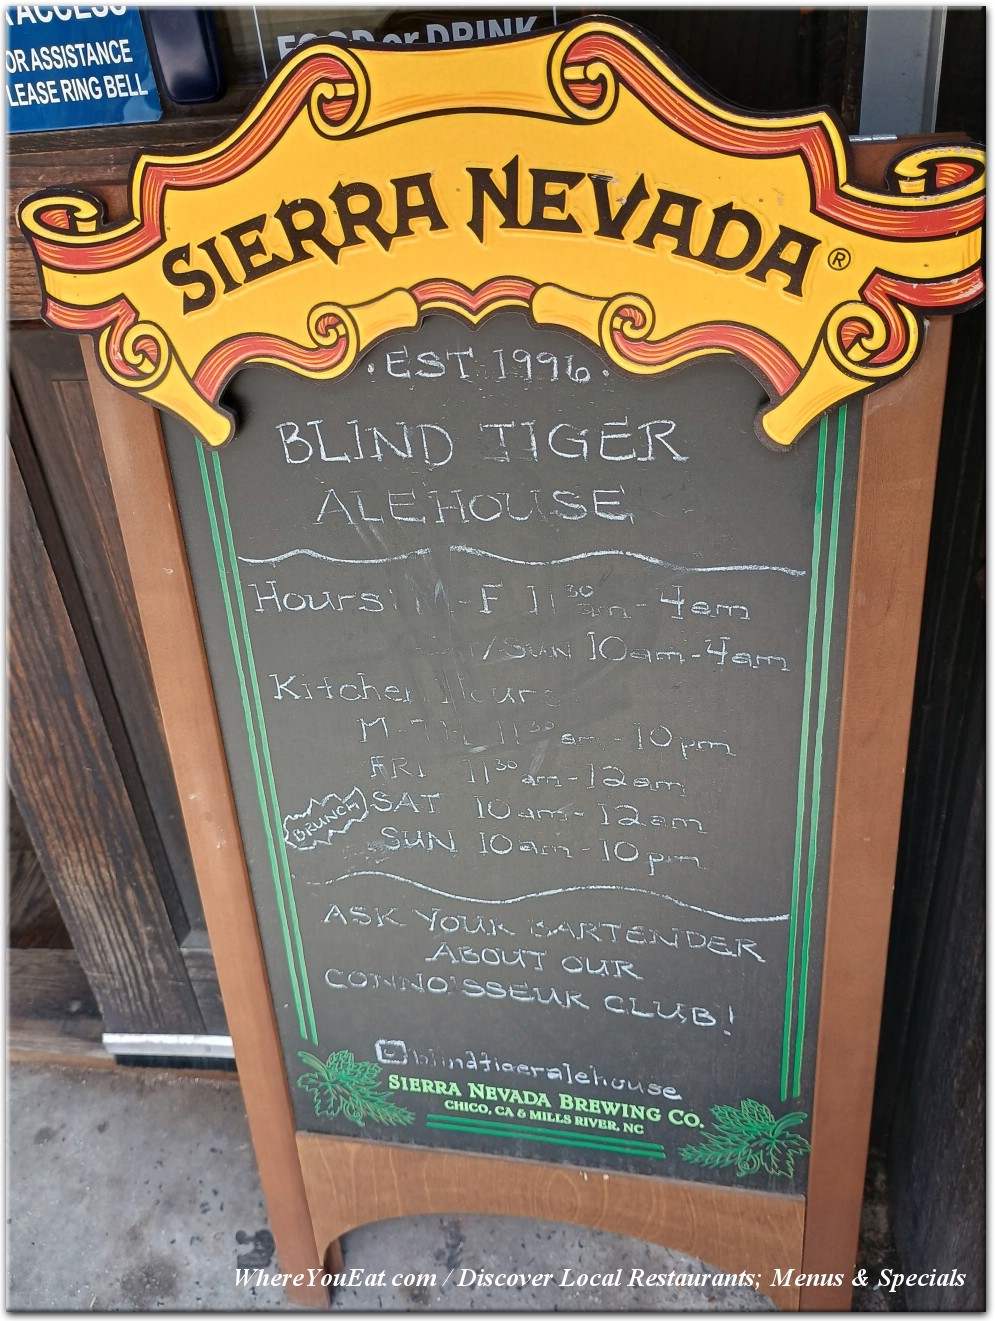 ACCESS
OR ASSISTANCE
LEASE RING BELL
FOOD or DRINK
SIERRA NEVADA®
·EST 1996·
BLIND TIGER
ALEHOUSE
Hours: M-F 11:30am-4am
Sat/SUN 10am-4am
Kitchen Hours
M-TH 11:30am-10pm
FRI 11:30am-12am
BRUNCH SAT 10am-12am
SUN 10am-10pm
ASK YOUR BARTENDER
ABOUT OUR
CONNOISSEUR CLUB!
blindtigeralehouse
SIERRA NEVADA BREWING CO.
CHICO, CA & MILLS RIVER, NC
WhereYouEat.com / Discover Local Restaurants; Menus & Specials